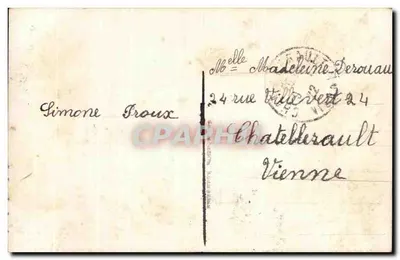 Simone Proux
Melle Madeleine Derouau
24 rue Vauvert 24
Chatellerault
Vienne